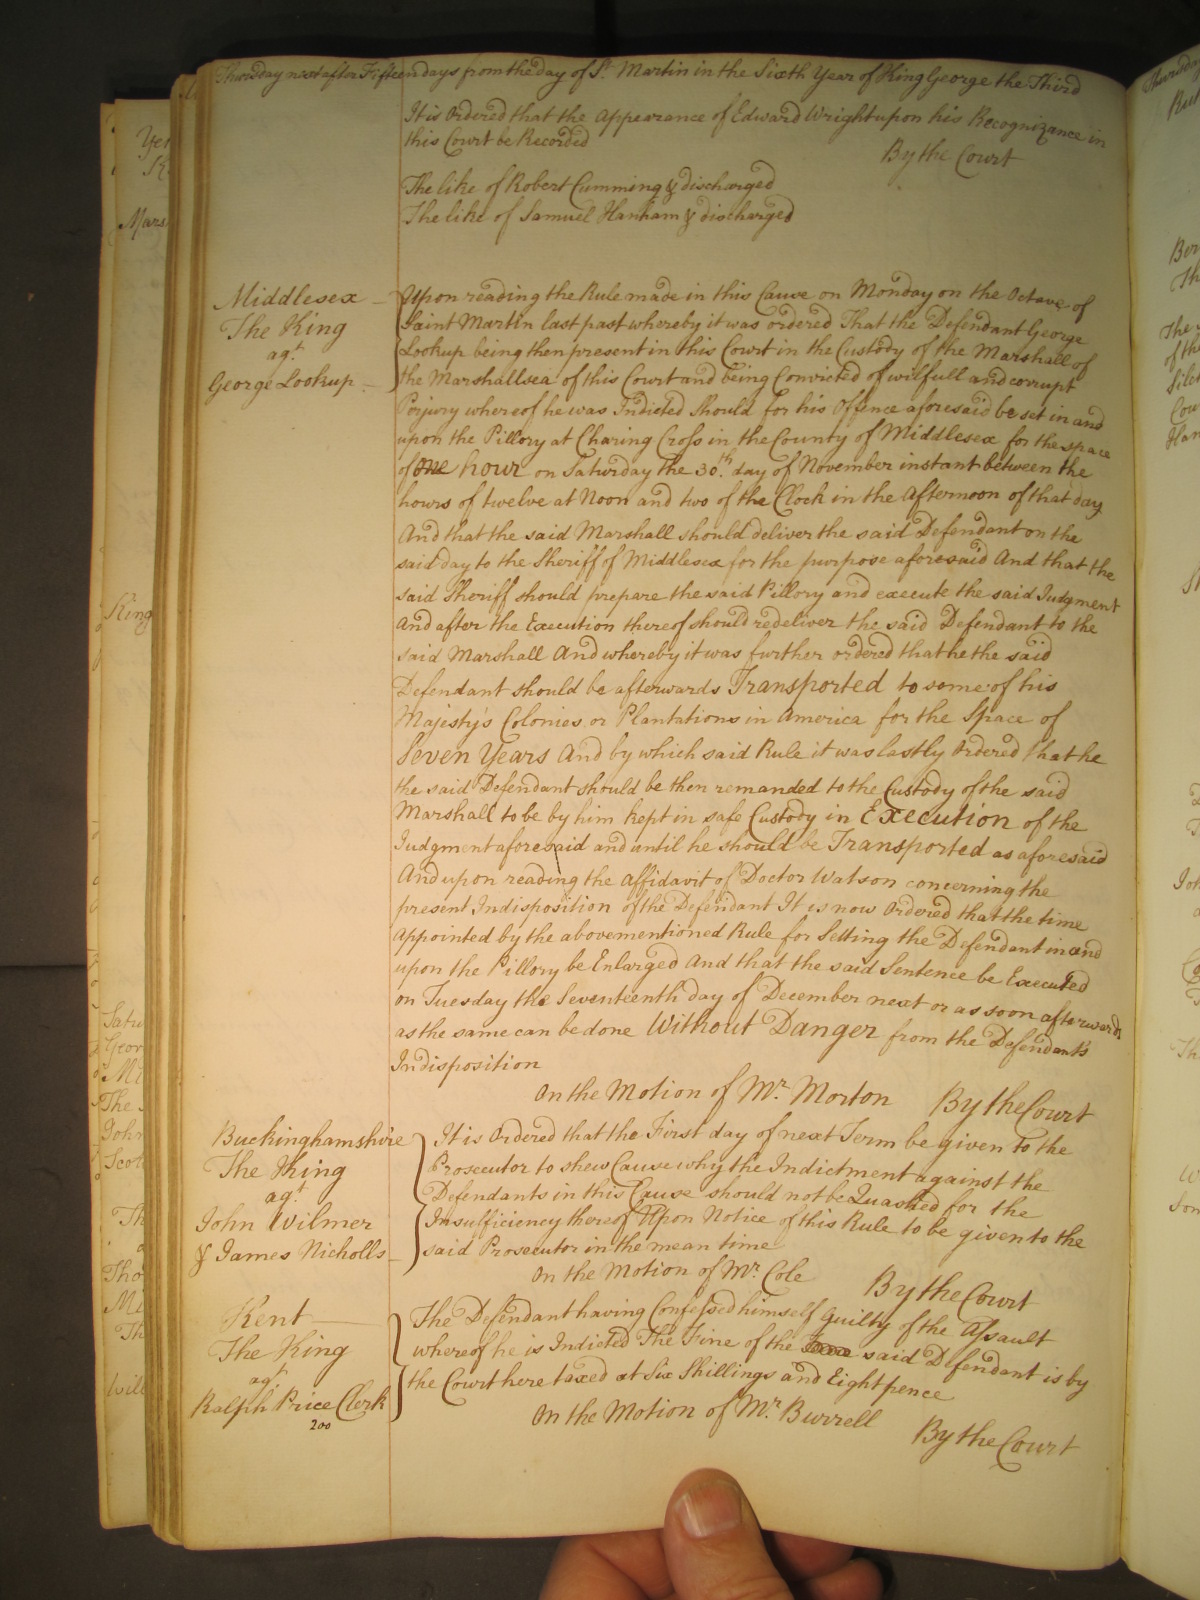 Thursday next after Fifteen days from the day of St. Martin in the Sixth Year of King George the Third
It is Ordered that the Appearance of Edward Wright upon his Recognizance in
this Court be Recorded
By the Court
The like of Robert Cumming & discharged
The like of Samuel Hanham & discharged
Middlesex
The King
agt.
George Lookup
Upon reading the Rule made in this Cause on Monday on the Octave of
Saint Martin last past whereby it was ordered That the Defendant George
Lookup being then present in this Court in the Custody of the Marshall of
the Marshallsea of this Court and being Convicted of wilfull and corrupt
Perjury whereof he was Indicted Should for his Offence aforesaid be set in and
upon the Pillory at Charing Cross in the County of Middlesex for the space
of One hour on Saturday the 30th. day of November instant between the
hours of twelve at Noon and two of the Clock in the Afternoon of that day
And that the said Marshall should deliver the said Defendant on the
said day to the Sheriff of Middlesex for the purpose aforesaid And that the
said Sheriff should prepare the said Pillory and execute the said Judgment
And after the Execution thereof should redeliver the said Defendant to the
said Marshall And whereby it was further ordered that he the said
Defendant should be afterwards Transported to some of his
Majesty's Colonies or Plantations in America for the Space of
Seven Years And by which said Rule it was lastly Ordered that he
the said Defendant should be then remanded to the Custody of the said
Marshall to be by him kept in safe Custody in Execution of the
Judgment aforesaid and until he should be Transported as aforesaid
And upon reading the Affidavit of Doctor Watson concerning the
present Indisposition of the Defendant It is now Ordered that the time
appointed by the abovementioned Rule for Setting the Defendant in and
upon the Pillory be Enlarged And that the said Sentence be Executed
on Tuesday the Seventeenth day of December next or as soon afterwards
as the same can be done Without Danger from the Defendant's
Indisposition
On the Motion of Mr. Morton By the Court
Buckinghamshire
The King
agt.
John Wilmer
& James Nicholls
It is Ordered that the First day of next Term be given to the
Prosecutor to shew Cause why the Indictment against the
Defendants in this Cause should not be Quashed for the
Insufficiency thereof Upon Notice of this Rule to be given to the
said Prosecutor in the mean time
On the Motion of Mr. Cole By the Court
Kent
The King
agt.
Ralph Price Clerk
200
The Defendant having Confessed himself Guilty of the Assault
whereof he is Indicted The Fine of the said Defendant is by
the Court here taxed at Six Shillings and Eightpence
On the Motion of Mr. Burrell
By the Court